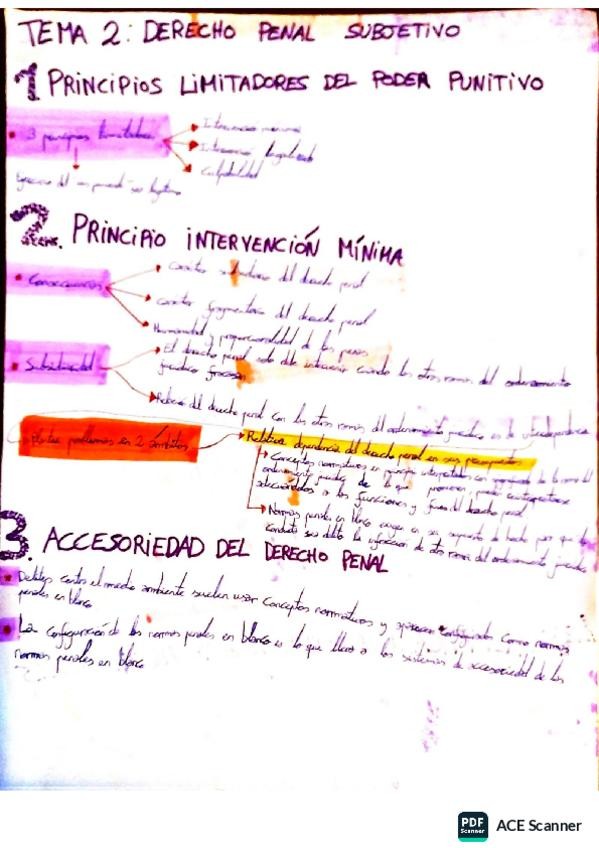 TEMA 2: DERECHO PENAL SUBJETIVO
1 PRINCIPIOS LIMITADORES DEL PODER PUNITIVO
3 principios limitadores
Intervención mínima
Intervención legalizada
Culpabilidad
Ejercicio del
2. PRINCIPIO INTERVENCIÓN MÍNIMA
Consecuencias
carácter subsidiario del derecho penal
carácter fragmentario del derecho penal
Humanidad y proporcionalidad de las penas
Subsidiariedad
El derecho penal solo debe intervenir cuando las otras ramas del ordenamiento
jurídico fracasan
Relación del derecho penal con las otras ramas del ordenamiento jurídico es de
plantea problemas en 2 ámbitos
Relativa dependencia del derecho penal en sus presupuestos
Conceptos normativos en principio interpretados con la rama del
ordenamiento jurídico de la que
a las funciones y fines del derecho penal
Normas penales en blanco en su supuesto de hecho por que la
conducta sea delito la infracción de otra rama del ordenamiento jurídico
3. ACCESORIEDAD DEL DERECHO PENAL
Delitos contra el medio ambiente suelen usar conceptos normativos y aparecen configurados como normas
penales en blanco
La configuración de las normas penales en blanco es lo que lleva a los sistemas de accesoriedad de las
normas penales en blanco
PDF
SCANNER
ACE Scanner